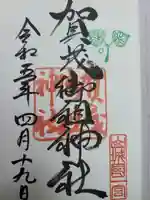 賀茂御祖神社
令和五年四月十九日